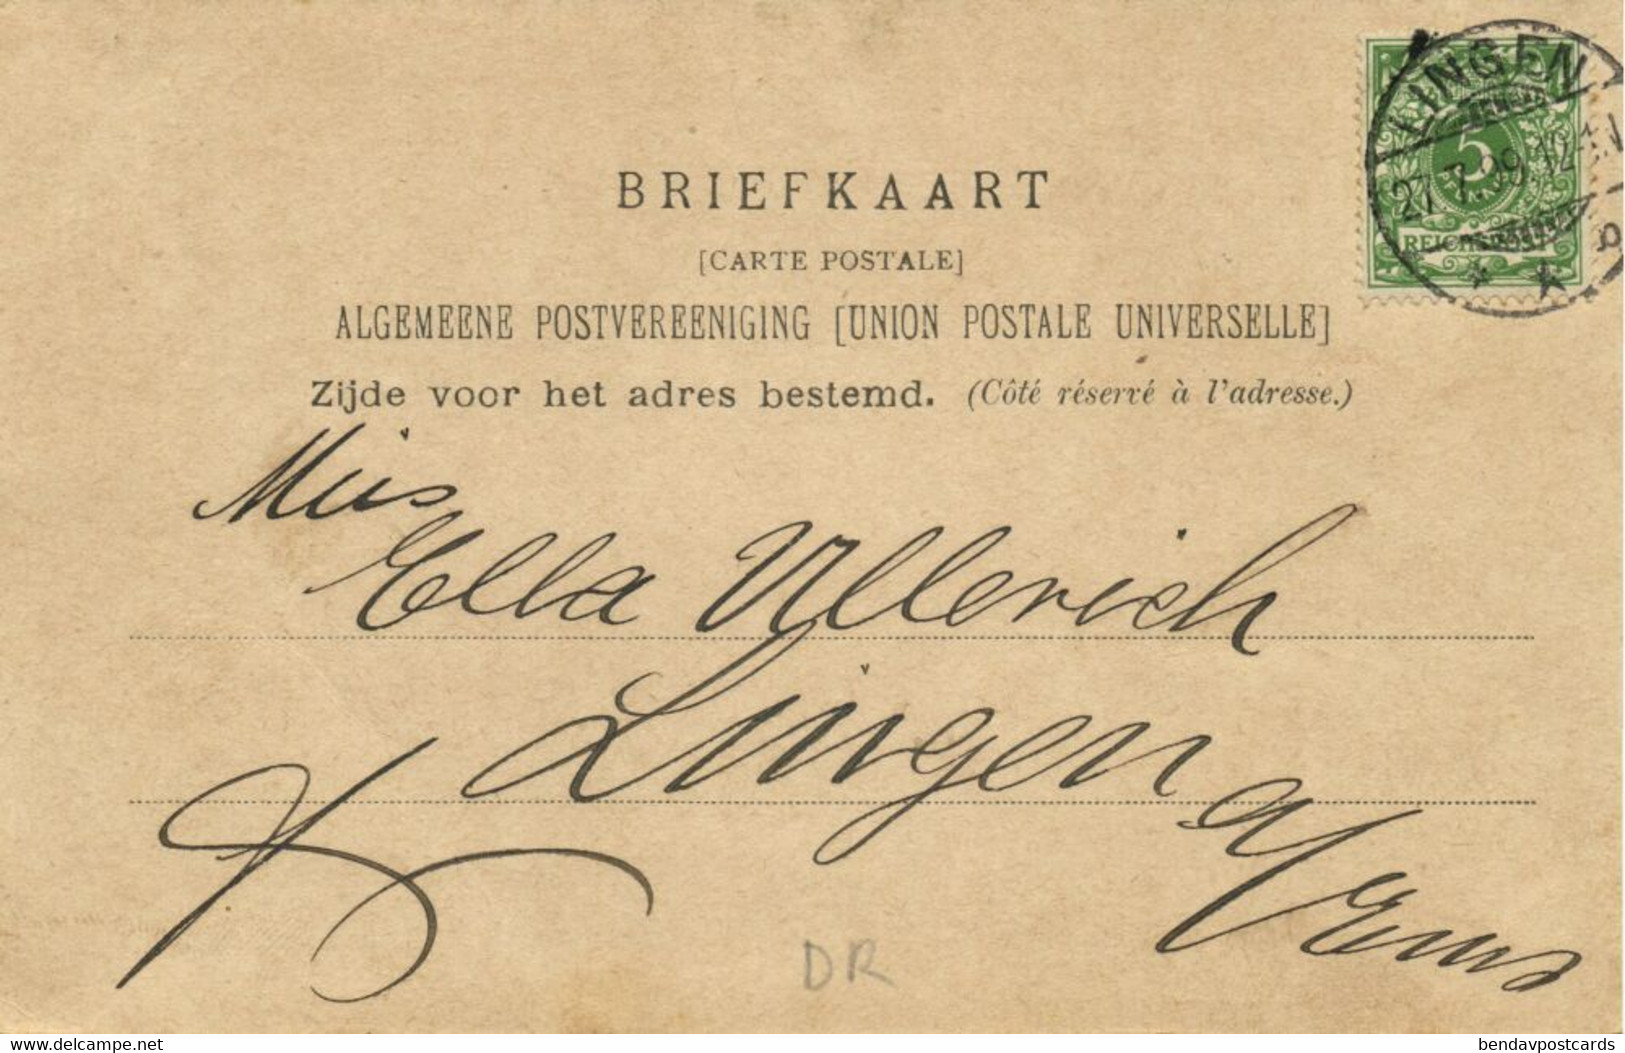 LINGEN
27.7.99.12
5
REICHSPOST
BRIEFKAART
[CARTE POSTALE]
ALGEMEENE POSTVEREENIGING [UNION POSTALE UNIVERSELLE]
Zijde voor het adres bestemd. (Côté réservé à l'adresse.)
Miss
Ella Ullerich
Lingen
a/Ems
DR
www.delcampe.net
bendavpostcards